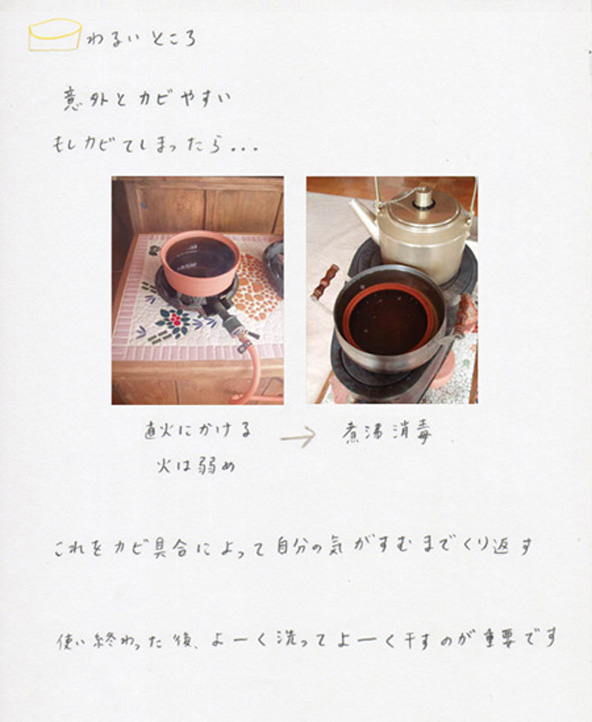 わるいところ
意外とカビやすい
もしカビてしまったら...
直火にかける → 煮湯消毒
火は弱め
これをカビ具合によって自分の気がすむまでくり返す
使い終わった後、よーく洗ってよーく干すのが重要です